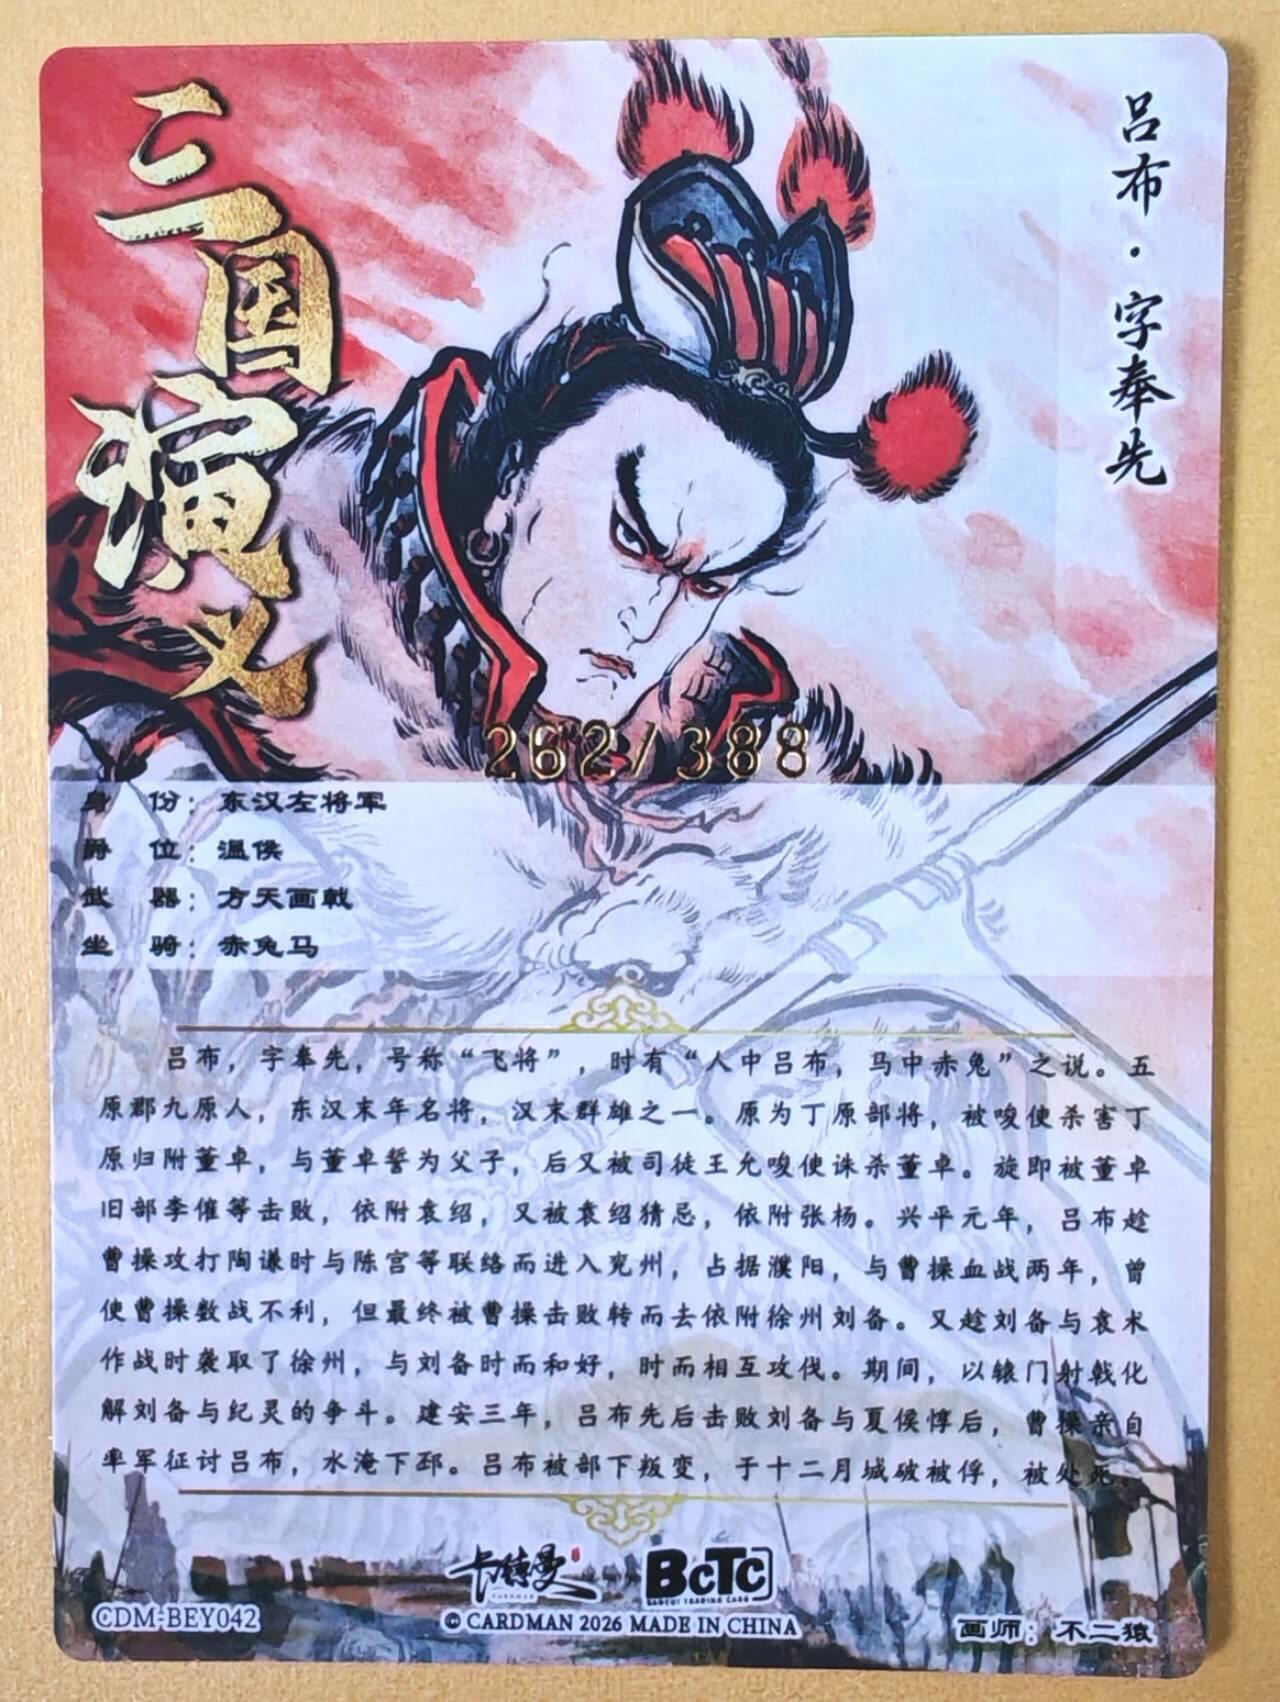 三国演义
吕布·字奉先
262/388
身 份：东汉左将军
爵 位：温侯
武 器：方天画戟
坐 骑：赤兔马
吕布，字奉先，号称“飞将”，时有“人中吕布，马中赤兔”之说。五
原郡九原人，东汉末年名将，汉末群雄之一。原为丁原部将，被唆使杀害丁
原归附董卓，与董卓誓为父子，后又被司徒王允唆使诛杀董卓。旋即被董卓
旧部李傕等击败，依附袁绍，又被袁绍猜忌，依附张杨。兴平元年，吕布趁
曹操攻打陶谦时与陈宫等联络而进入兖州，占据濮阳，与曹操血战两年，曾
使曹操数战不利，但最终被曹操击败转而去依附徐州刘备。又趁刘备与袁术
作战时袭取了徐州，与刘备时而和好，时而相互攻伐。期间，以辕门射戟化
解刘备与纪灵的争斗。建安三年，吕布先后击败刘备与夏侯惇后，曹操亲自
率军征讨吕布，水淹下邳。吕布被部下叛变，于十二月城破被俘，被处死。
卡德曼 BCTC
CARDMAN BAOCUI TRADING CARD
CDM-BEY042
© CARDMAN 2026 MADE IN CHINA
画师：不二猿